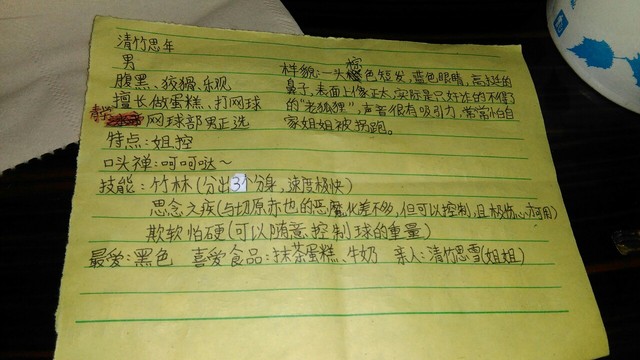 清竹思年
男
腹黑、狡猾、乐观
擅长做蛋糕、打网球
青学网球部男正选
特点:姐控
口头禅:呵呵哒~
样貌:一头棕色短发,蓝色眼睛,高挺的
鼻子,表面上像正太,实际是只奸诈的不得了
的"老狐狸",声音很有吸引力,常常怕自
家姐姐被拐跑。
技能:竹林(分出3个分身,速度极快)
思念之疾(与切原赤也的恶魔化差不多,但可以控制,且极伤心才可用)
欺软怕硬(可以随意控制球的重量)
最爱:黑色 喜爱食品:抹茶蛋糕、牛奶 亲人:清竹思雪(姐姐)